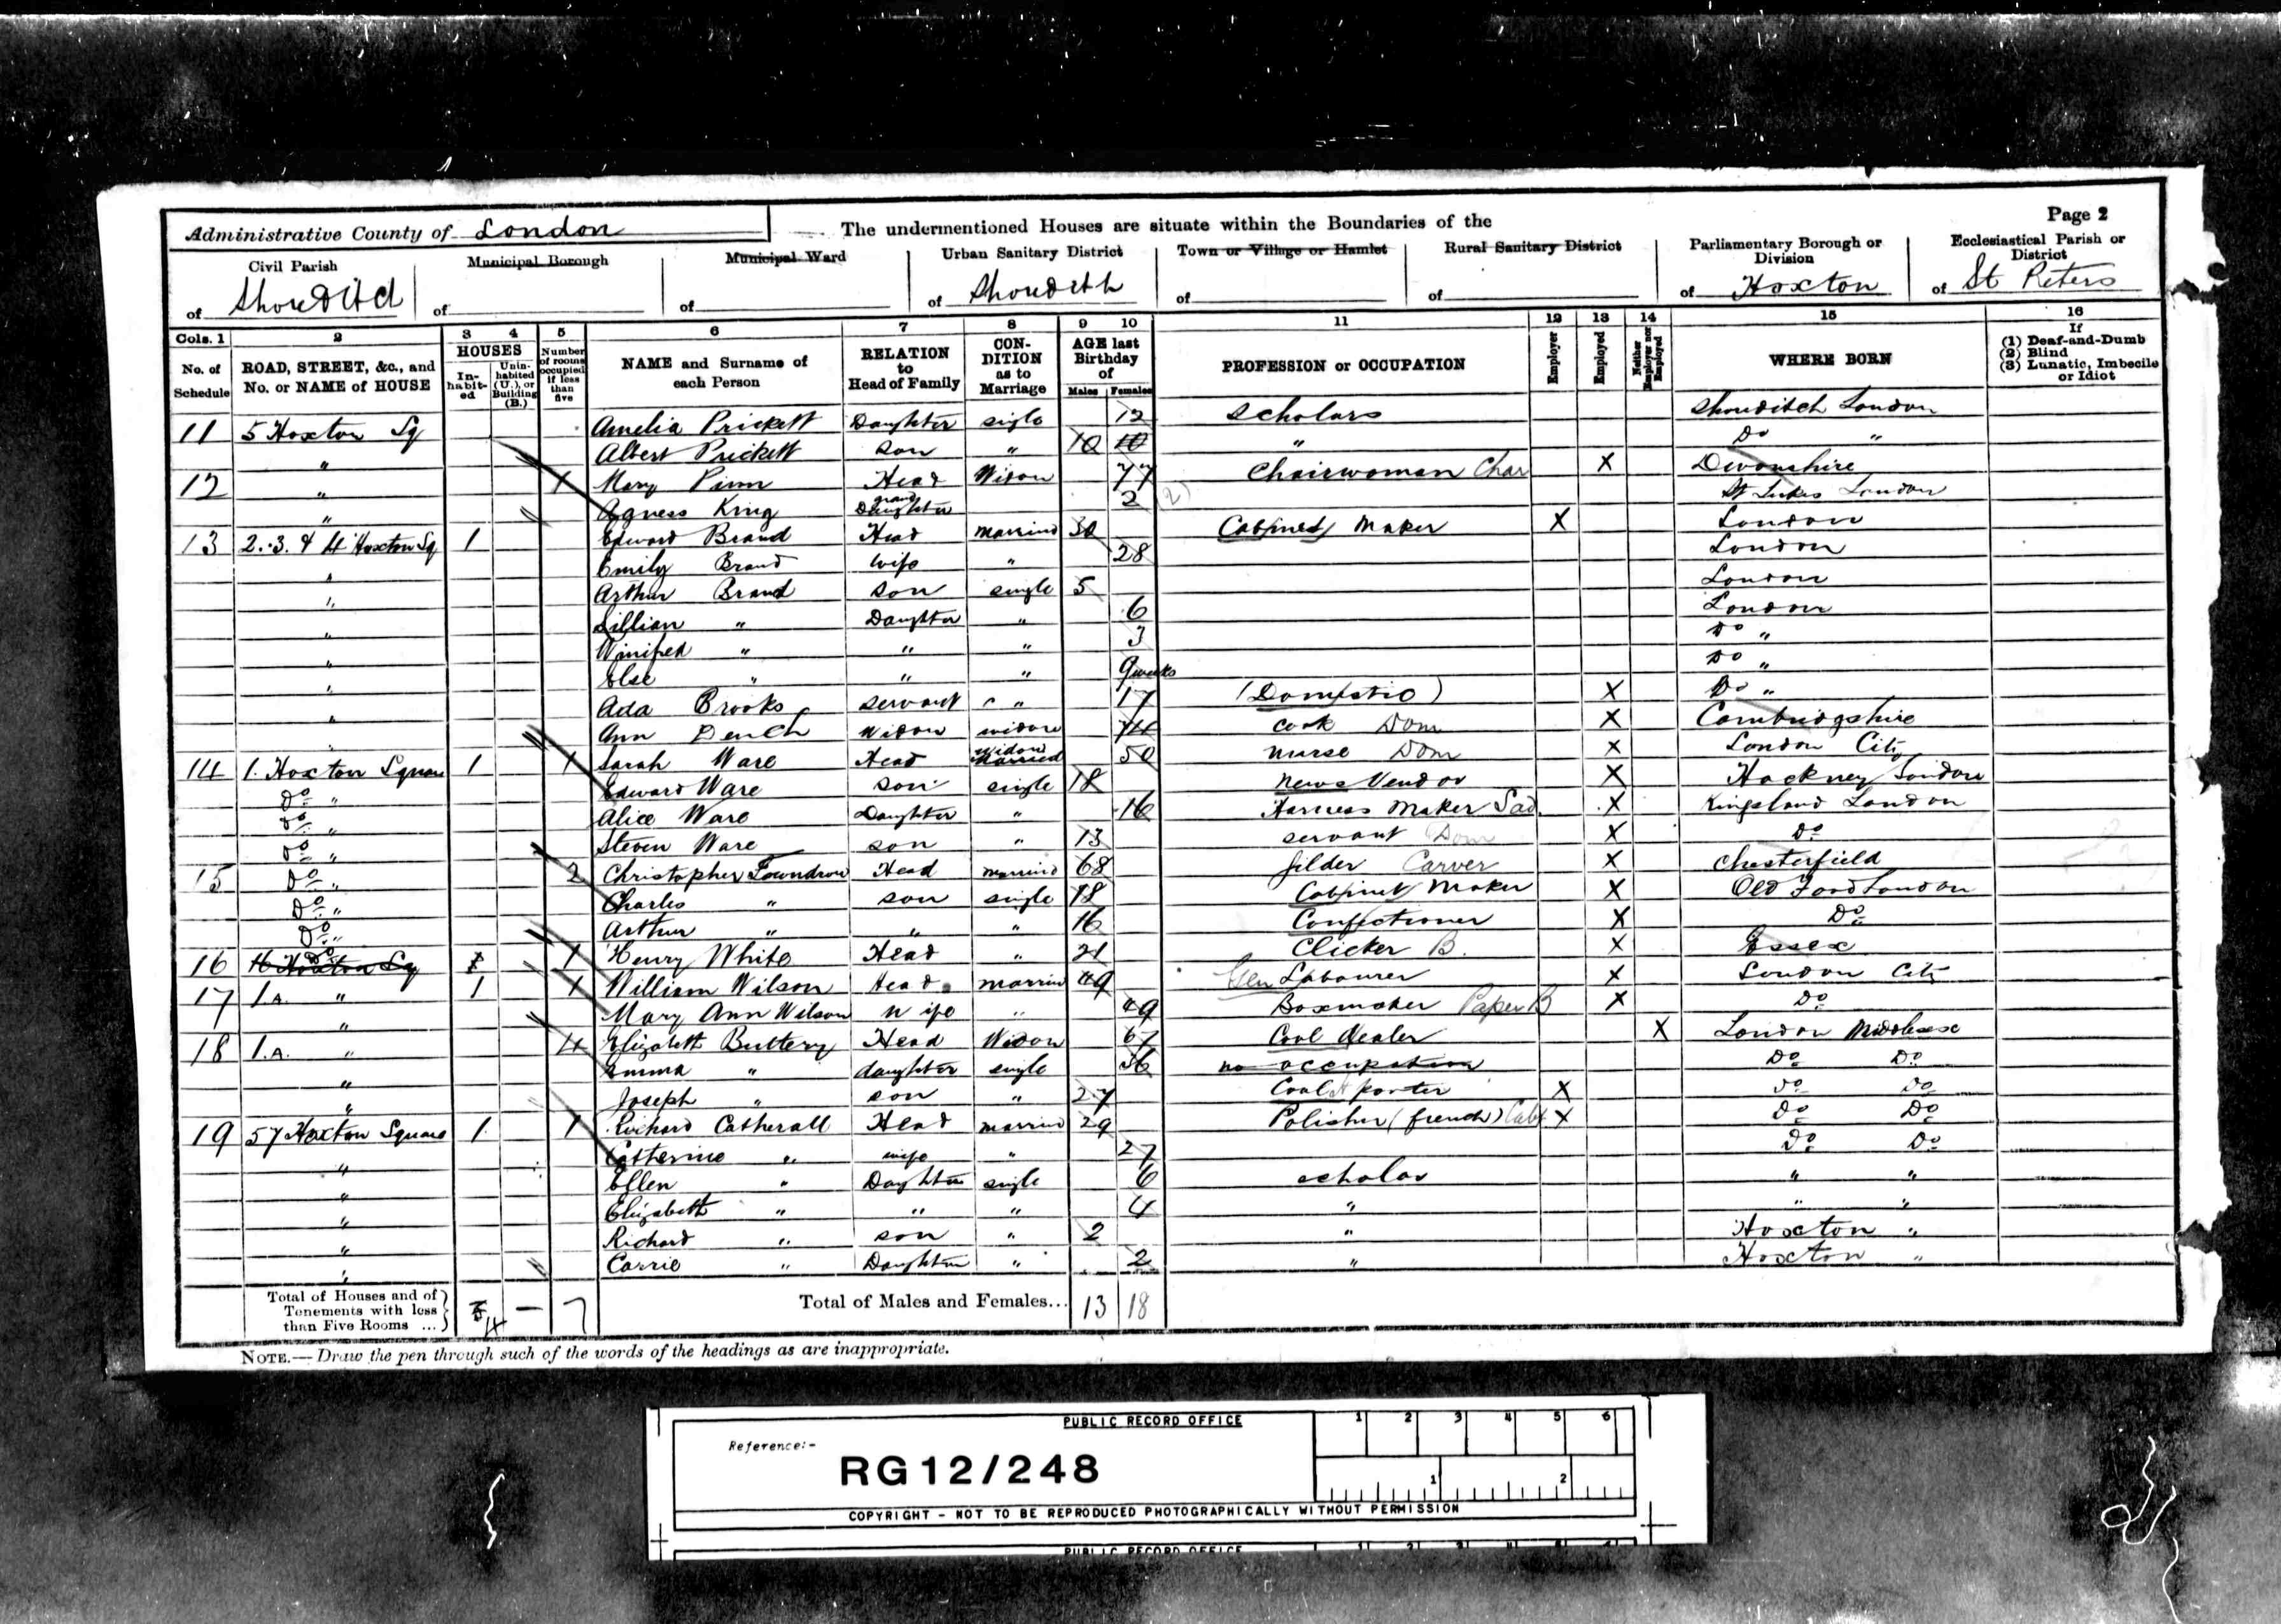 Page 2
Administrative County of London
The undermentioned Houses are situate within the Boundaries of the
Civil Parish of Shoreditch
Municipal Borough of
Municipal Ward of
Urban Sanitary District of Shoreditch
Town or Village or Hamlet of
Rural Sanitary District of
Parliamentary Borough or Division of Hoxton
Ecclesiastical Parish or District of St Peters
Cols. 1 2 3 4 5 6 7 8 9 10 11 12 13 14 15 16
No. of Schedule
ROAD, STREET, &c., and No. or NAME of HOUSE
HOUSES
In-habit-ed
Unin-habited (U.), or Building (B.)
Number of rooms occupied if less than five
NAME and Surname of each Person
RELATION to Head of Family
CON-DITION as to Marriage
AGE last Birthday of
Males Females
PROFESSION or OCCUPATION
Employer
Employed
Neither Employer nor Employed
WHERE BORN
If (1) Deaf-and-Dumb (2) Blind (3) Lunatic, Imbecile or Idiot
11 5 Hoxton Sq Amelia Prickett Daughter sigle 12 scholars Shoreditch London
" Albert Prickett son " 10 10 " Do "
12 " 1 Mary Pinn Head Widow 77 Chairwoman Char X Devonshire
" Agness King grand Daughter 2 St Lukes London
13 2.3. & 4 Hoxton Sq 1 Edward Brand Head married 30 Cabinet Maker X London
" Emily Brand wife " 28 London
" Arthur Brand son single 5 London
" Lillian " Daughter " 6 London
" Winifred " " " 3 Do "
" Else " " " 9 weeks Do "
" Ada Brooks servant " 17 (Domestic) X Do "
" Ann Dench Widow widow 74 cook Dom X Cambridgshire
14 1. Hoxton Square 1 1 Sarah Ware Head Widow Married 50 nurse Dom X London City
Do " Edward Ware son single 18 news Vendor X Hackney London
Do " Alice Ware Daughter " 16 Harness Maker Sad. X Kingsland London
Do " Steven Ware son " 13 servant Dom X Do
15 Do " 2 Christopher Foundrow Head married 68 gilder Carver X Chesterfield
Do " Charles " son single 18 Cabinet Maker X Old Foord London
Do " Arthur " " " 16 Confectioner X Do
16 Do 4 Hoxton Sq 1 Henry White Head " 21 Clicker B. X Essex
17 1A. " 1 1 William Wilson Head married 49 Gen Labourer X London City
" Mary Ann Wilson wife " 49 Boxmaker Paper B X Do
18 1.A. " 4 Elizabeth Buttery Head Widow 67 Coal dealer X London Middlesex
" Emma " daughter single 36 no occupation Do Do
" Joseph " son " 27 Coal porter X Do Do
19 57 Hoxton Square 1 1 Richard Catherall Head married 29 Polisher (french) Cab X Do Do
" Catherine " wife " 27 Do Do
" Ellen " Daughter single 6 scholar " "
" Elizabeth " " " 4 " " "
" Richard " son " 2 " Hoxton "
" Carrie " Daughter " 2 " Hoxton "
Total of Houses and of Tenements with less than Five Rooms ... 4 — 7
Total of Males and Females... 13 18
NOTE.— Draw the pen through such of the words of the headings as are inappropriate.
PUBLIC RECORD OFFICE
1 2 3 4 5 6
Reference:-
RG12/248
1 2
COPYRIGHT - NOT TO BE REPRODUCED PHOTOGRAPHICALLY WITHOUT PERMISSION
PUBLIC RECORD OFFICE